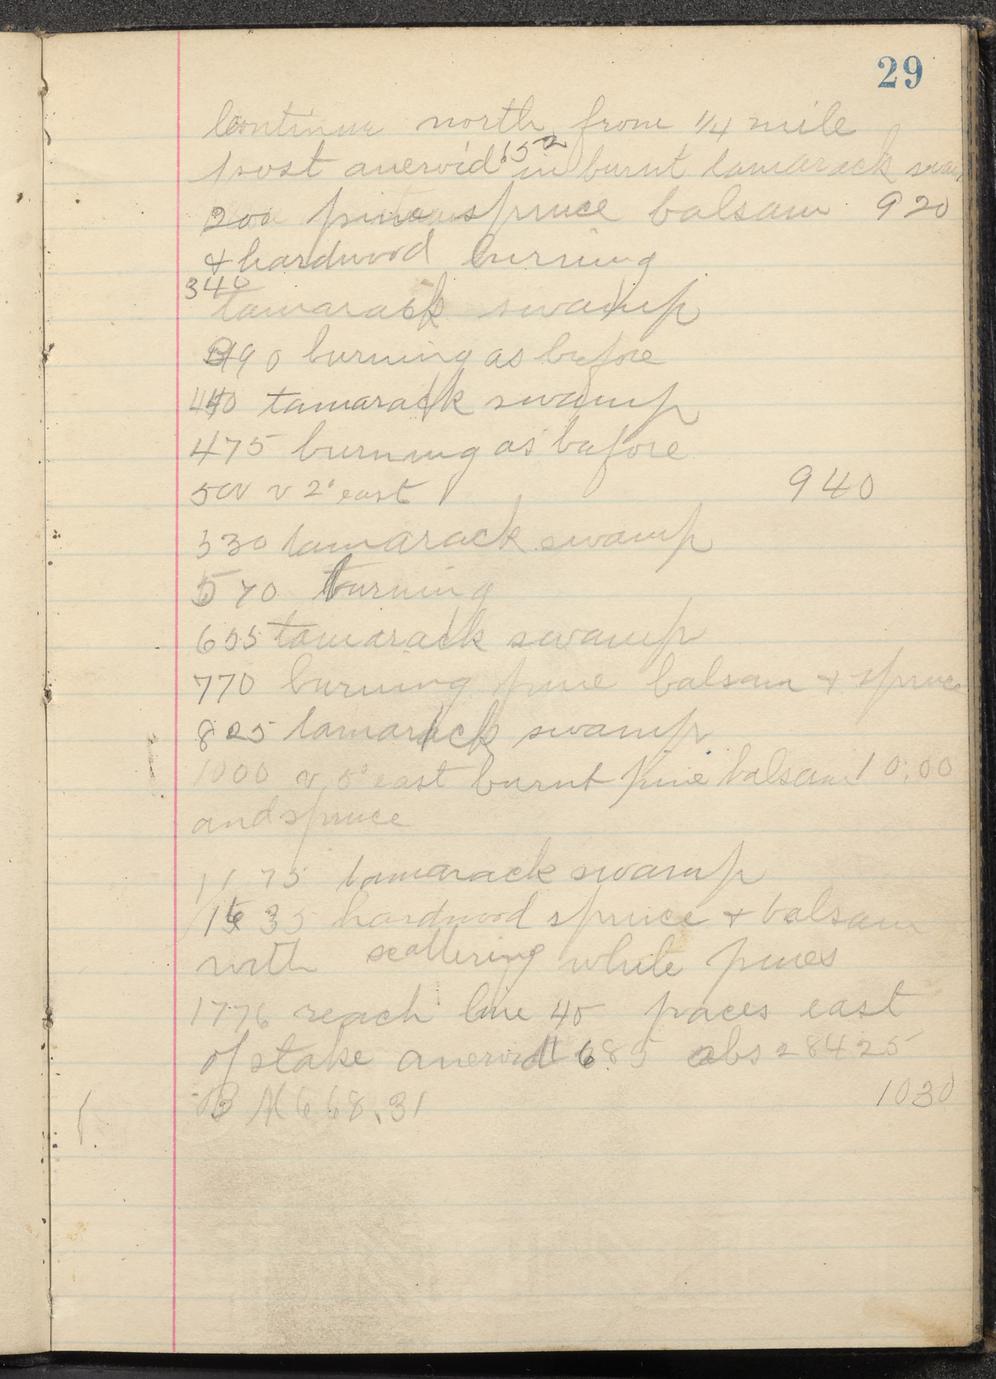 29
Continue north from 1/4 mile
post aneroid 652 in burnt tamarack swamp
200 pine spruce balsam 920
& hardwood burning
340
tamarack swamp
390 burning as before
440 tamarack swamp
475 burning as before
500 v 2° east 940
530 tamarack swamp
570 burning
655 tamarack swamp
770 burning pine balsam & spruce
825 tamarack swamp
1000 v 0° east burnt pine balsam 10.00
and spruce
1175 tamarack swamp
1635 hardwood spruce & balsam
with scattering white pines
1776 reach line 45 paces east
of stake aneroid 685 abs 28425
B M 668.31 1030